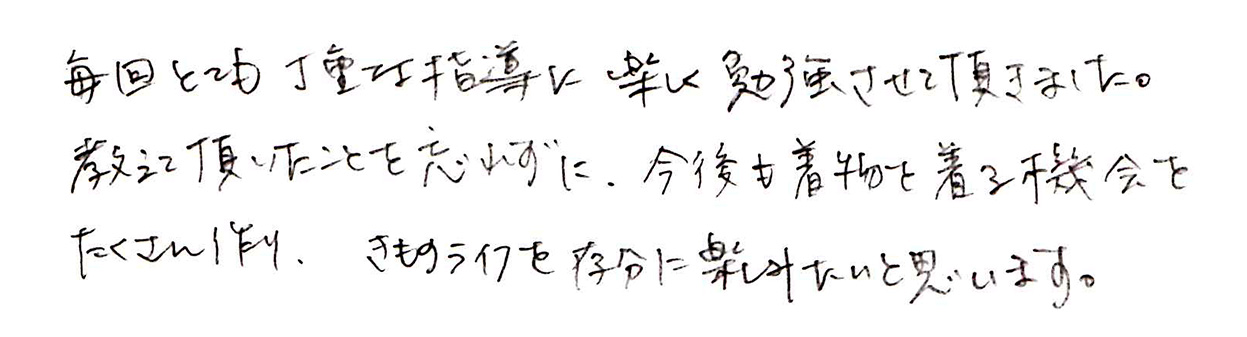 毎回とても丁重な指導に楽しく勉強させて頂きました。
教えて頂いたことを忘れずに、今後も着物を着る機会を
たくさん作り、きものライフを存分に楽しみたいと思います。